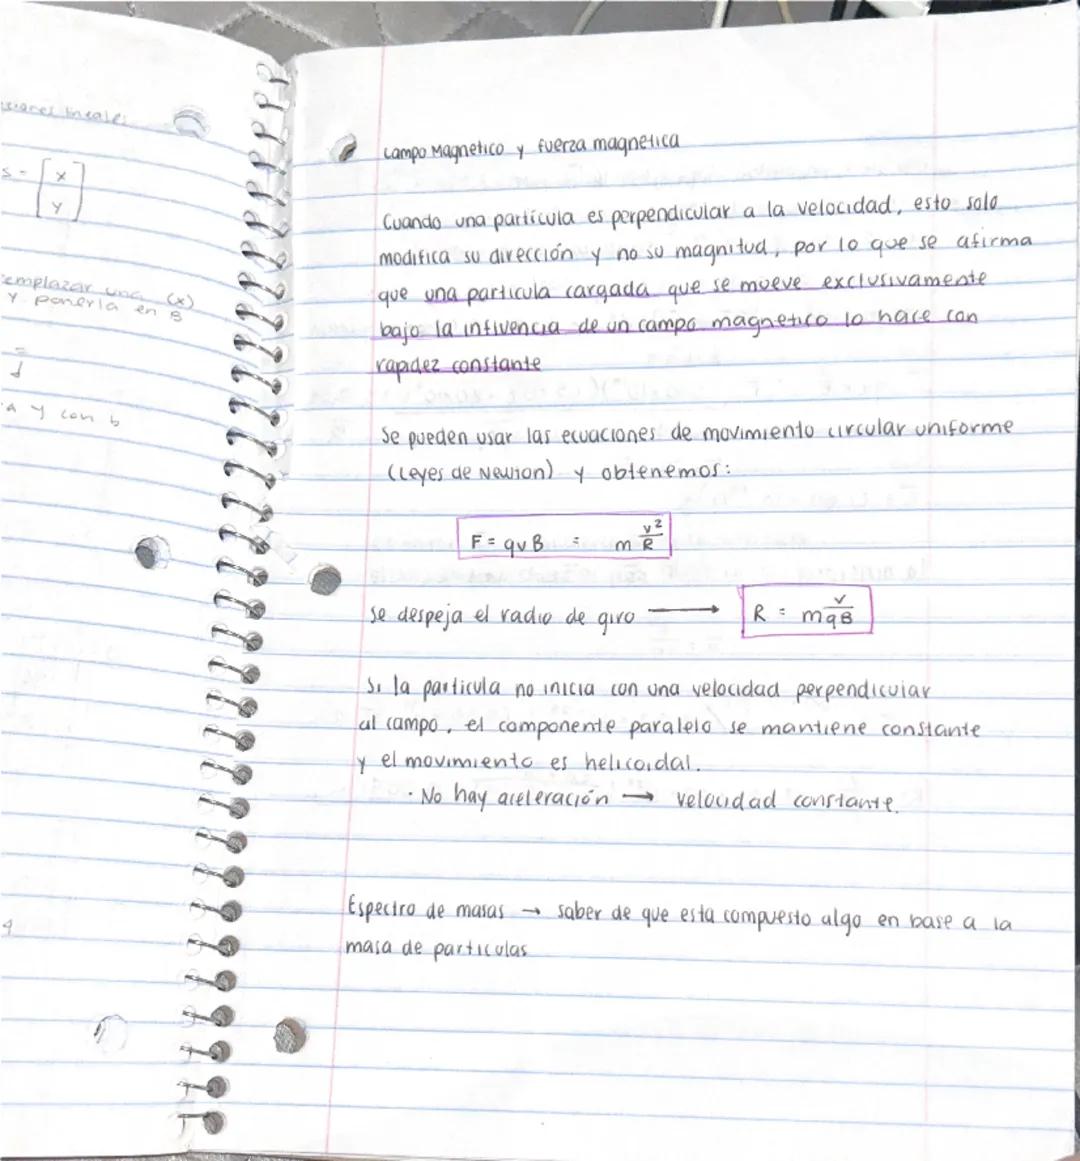 lineales
s = [ x
y ]
emplazar una (x)
y ponerla en B
a y con b
4
Campo Magnetico y fuerza magnetica
Cuando una partícula es perpendicular a la velocidad, esto solo
modifica su dirección y no su magnitud, por lo que se afirma
que una particula cargada que se mueve exclusivamente
bajo la influencia de un campo magnetico lo hace con
rapidez constante
Se pueden usar las ecuaciones de movimiento circular uniforme
(Leyes de Newton) y obtenemos:
F = qvB = m v²/R
Se despeja el radio de giro → R = m v/qB
Si la particula no inicia con una velocidad perpendicular
al campo, el componente paralelo se mantiene constante
y el movimiento es helicoidal.
· No hay aceleración → velocidad constante.
Espectro de masas → saber de que esta compuesto algo en base a la
masa de particulas